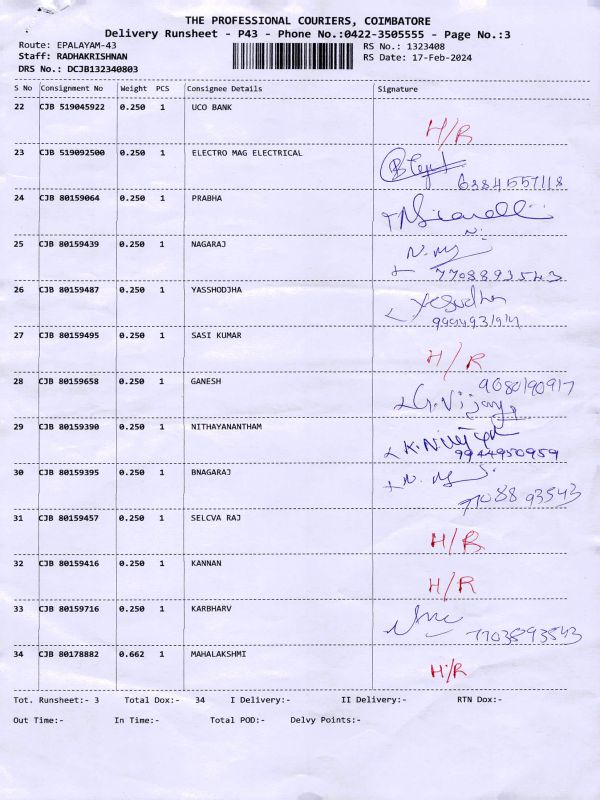 THE PROFESSIONAL COURIERS, COIMBATORE
Delivery Runsheet - P43 - Phone No.:0422-3505555 - Page No.:3
Route: EPALAYAM-43 RS No.: 1323408
Staff: RADHAKRISHNAN RS Date: 17-Feb-2024
DRS No.: DCJB132340803
S No Consignment No Weight PCS Consignee Details Signature
22 CJB 519045922 0.250 1 UCO BANK
H/R
23 CJB 519092500 0.250 1 ELECTRO MAG ELECTRICAL
6384557118
24 CJB 80159064 0.250 1 PRABHA
25 CJB 80159439 0.250 1 NAGARAJ
7708893543
26 CJB 80159487 0.250 1 YASSHODJHA
27 CJB 80159495 0.250 1 SASI KUMAR
H/R
28 CJB 80159658 0.250 1 GANESH
9080190917
G.Vijaya
29 CJB 80159390 0.250 1 NITHAYANANTHAM
9944950959
30 CJB 80159395 0.250 1 BNAGARAJ
7708893543
31 CJB 80159457 0.250 1 SELCVA RAJ
H/R
32 CJB 80159416 0.250 1 KANNAN
H/R
33 CJB 80159716 0.250 1 KARBHARV
7703893543
34 CJB 80178882 0.662 1 MAHALAKSHMI
H/R
Tot. Runsheet:- 3 Total Dox:- 34 I Delivery:- II Delivery:- RTN Dox:-
Out Time:- In Time:- Total POD:- Delvy Points:-